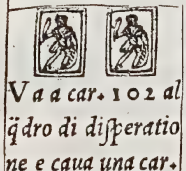 V a a car. 102 al
q̃dro di diſperatio
ne e caua una car.